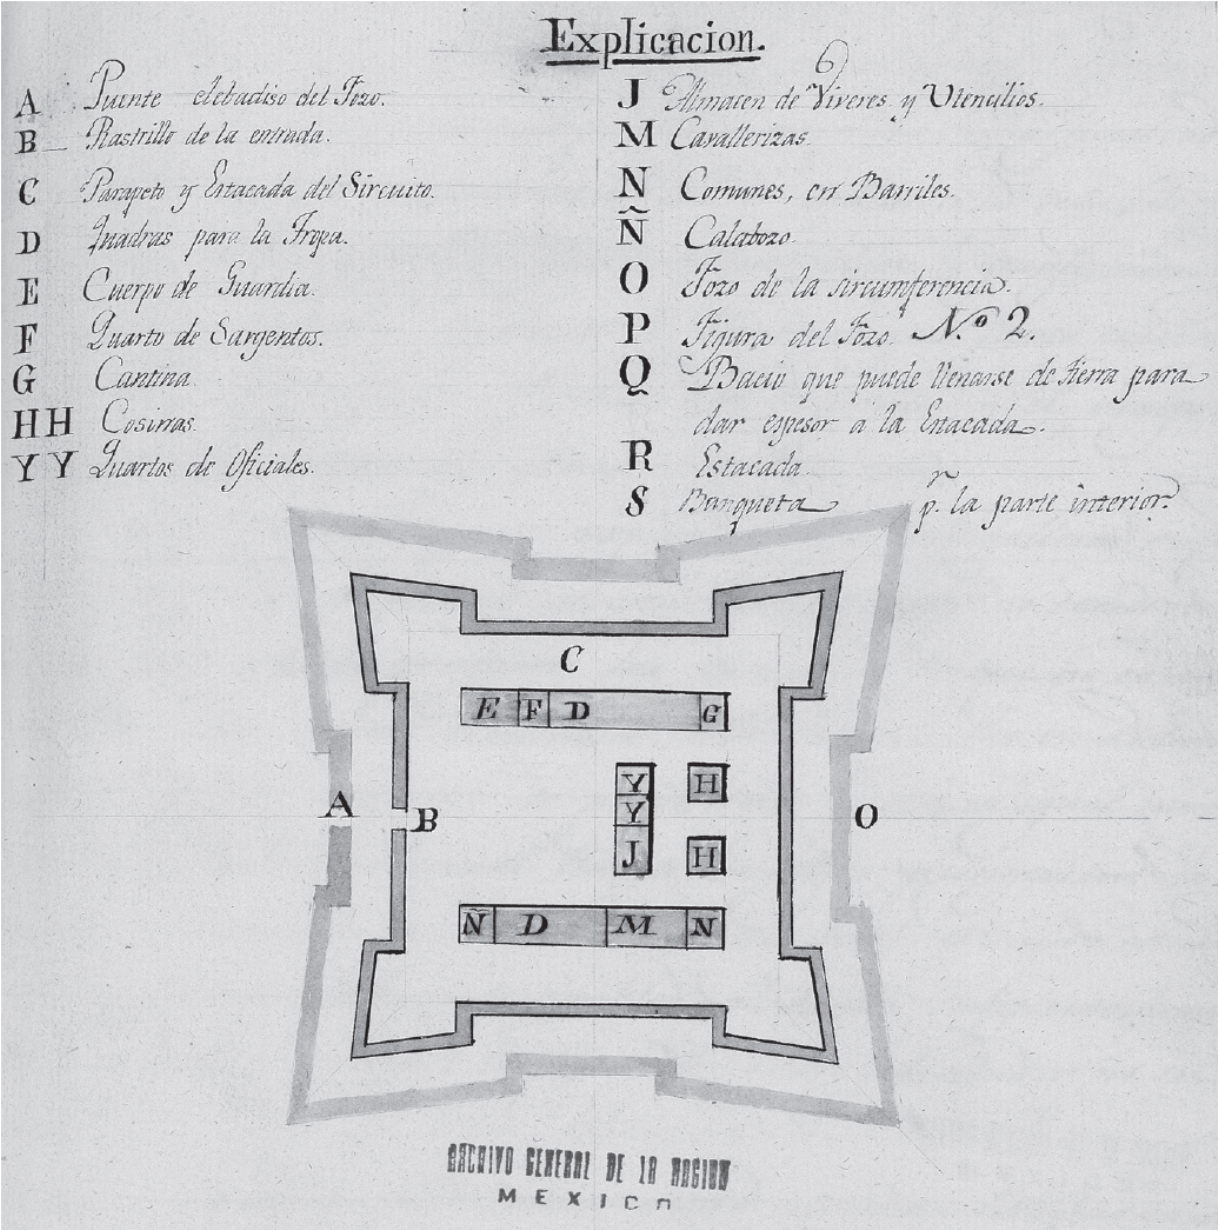 Explicacion.
A Puente elebadiso del Fozo.
B Rastrillo de la entrada.
C Parapeto y Estacada del Sircuito.
D Quadras para la Tropa.
E Cuerpo de Guardia.
F Quarto de Sargentos.
G Cantina
HH Cosinas.
YY Quartos de Oficiales.
J Almacen de Viveres y Utencilios.
M Cavallerizas
N Comunes, en Barriles.
Ñ Calabozo
O Fozo de la sircumferencia.
P Figura del Fozo Nº 2.
Q Bacio que puede llenarse de tierra para
dar espesor a la Estacada.
R Estacada
S Banqueta pr. la parte interior.
C
E F D G
Y H
Y
A B O
J H
Ñ D M N
ARCHIVO GENERAL DE LA NACION
MEXICO